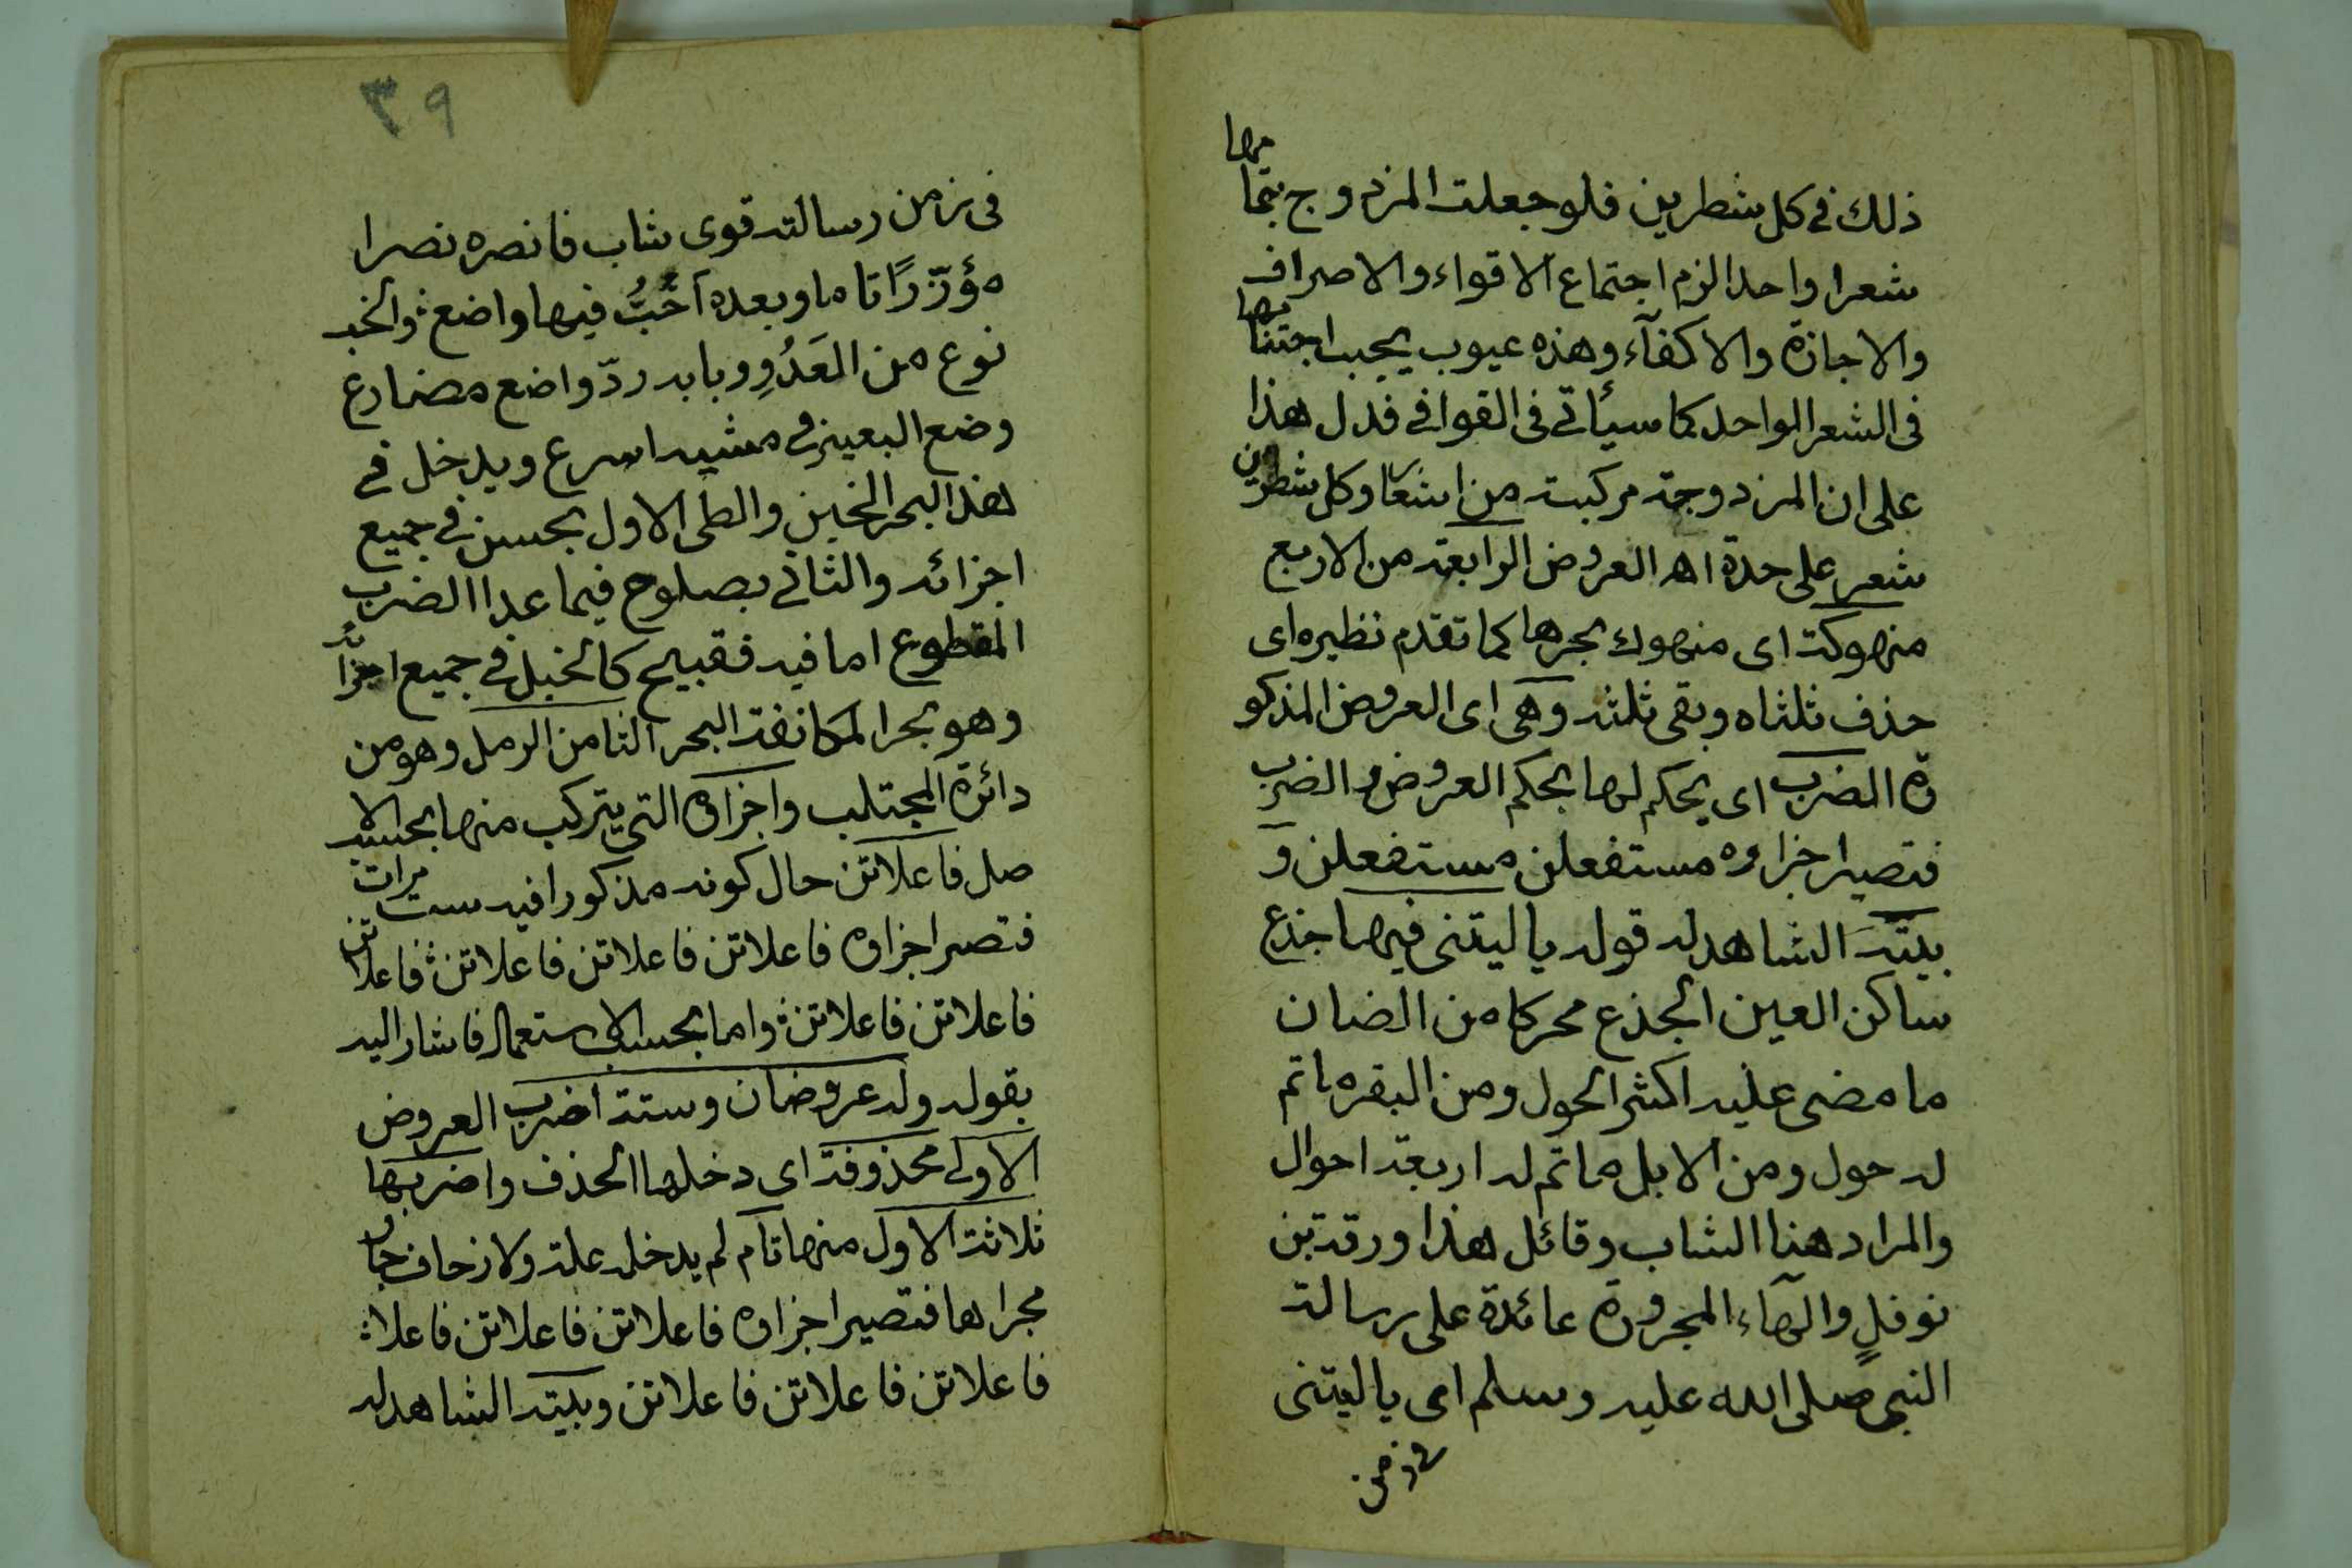 ذلك في كل شطرين فلو جعلت المزدوج بتمامها
شعرا واحدا لزم اجتماع الاقواء والاصراف
والاجازة والاكفآء وهذه عيوب يجب اجتنابها
في الشعر الواحد كما سيأتي في القوافي فدل هذا
على ان المزدوجة مركبة من اشعار وكل شطرين
شعر على حدة اهـ العروض الرابعة من الاربع
منهوكة اى منهوك بحرها كما تقدم نظيره اى
حذف ثلثاه وبقى ثلثه وهى اى العروض المذكو
رة الضرب اى يحكم لها بحكم العروض والضرب
فتصير اجزاوه مستفعلن مستفعلن و
بيته الشاهد له قوله يا ليتنى فيها جذع
ساكن العين الجذع محركا من الضان
ما مضى عليه اكثر الحول ومن البقر ماتم
له حول ومن الابل ماتم له اربعة احوال
والمراد هنا الشاب وقائل هذا ورقة بن
نوفلٍ والهآء المجرورة عائدة على رسالة
النبى صلى الله عليه وسلم اى يا ليتنى
في زمن
٣٩
في زمن رسالته قوى شاب فانصره نصرا
مؤزّرًا تاما وبعده اَخُبُّ فيها واضع والخبـ
نوع من العَدْوِ وبابه ردّ واضع مضارع
وضع البعير في مشيه اسرع ويدخل في
هذا البحر الخبن والطى الاول بحسن في جميع
اجزائه والثاني بصلوح فيما عدا الضرب
المقطوع اما فيه فقبيح كالخبل في جميع اجزائه
وهو بحر المكانفة البحر الثامن الرمل وهو من
دائرة المجتلب واجزاوه التى يتركب منها بحسب الا
صل فاعلاتن حال كونه مذكورا فيه ست مرات
فتصير اجزاوه فاعلاتن فاعلاتن فاعلاتن فاعلاتن
فاعلاتن فاعلاتن واما بحسب الاستعمال فاشار اليه
بقوله وله عروضان وستة اضرب العروض
الاولى محذوفة اى دخلها الحذف واضربها
ثلاثة الاول منها تام لم يدخله علة ولا زحاف جار
مجراها فتصير اجزاوه فاعلاتن فاعلاتن فاعلا
فاعلاتن فاعلاتن فاعلاتن وبيته الشاهد له